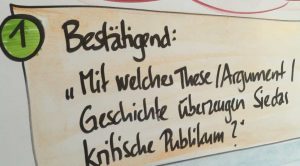 1
Bestätigend:
„Mit welches These/Argument/
Geschichte überzeugen Sie das
kritische Publikum?"